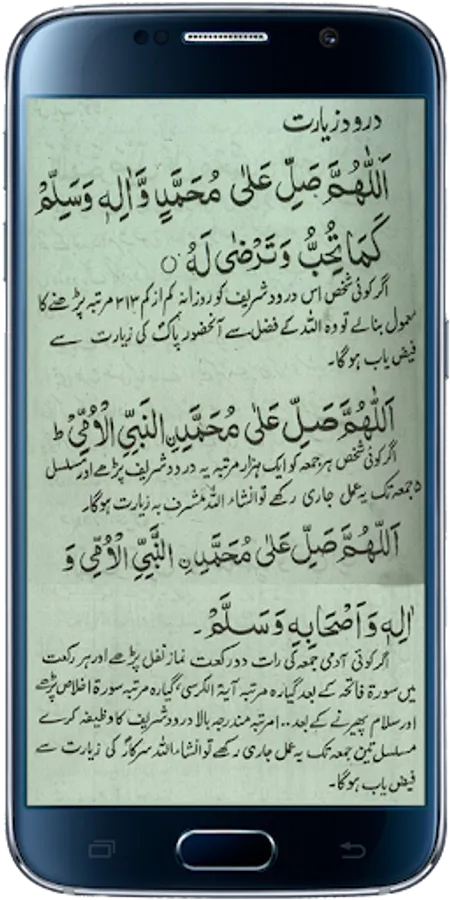 درود زیارت
اَللّٰهُمَّ صَلِّ عَلٰى مُحَمَّدٍ وَّاٰلِهٖ وَسَلِّمْ
كَمَا تُحِبُّ وَتَرْضٰى لَهٗ ○
اگر کوئی شخص اس درود شریف کو روزانہ کم از کم ۳۱۳ مرتبہ پڑھنے کا
معمول بنالے تو وہ اللہ کے فضل سے آنحضور پاکؐ کی زیارت سے
فیض یاب ہوگا۔
اَللّٰهُمَّ صَلِّ عَلٰى مُحَمَّدِنِ النَّبِيِّ الْاُمِّيِّ ط
اگر کوئی شخص ہر جمعہ کو ایک ہزار مرتبہ یہ درود شریف پڑھے اور مسلسل
۵ جمعہ تک یہ عمل جاری رکھے تو انشاء اللہ مشرف بہ زیارت ہوگا۔
اَللّٰهُمَّ صَلِّ عَلٰى مُحَمَّدِنِ النَّبِيِّ الْاُمِّيِّ وَ
اٰلِهٖ وَاَصْحَابِهٖ وَسَلَّمْ۔
اگر کوئی آدمی جمعہ کی رات دو رکعت نماز نفل پڑھے اور ہر رکعت
میں سورۃ فاتحہ کے بعد گیارہ مرتبہ آیۃ الکرسی، گیارہ مرتبہ سورۃ اخلاص پڑھے
اور سلام پھیرنے کے بعد ۱۰۰ مرتبہ مندرجہ بالا درود شریف کا وظیفہ کرے
مسلسل تین جمعہ تک یہ عمل جاری رکھے تو انشاء اللہ سرکارؐ کی زیارت سے
فیض یاب ہوگا۔